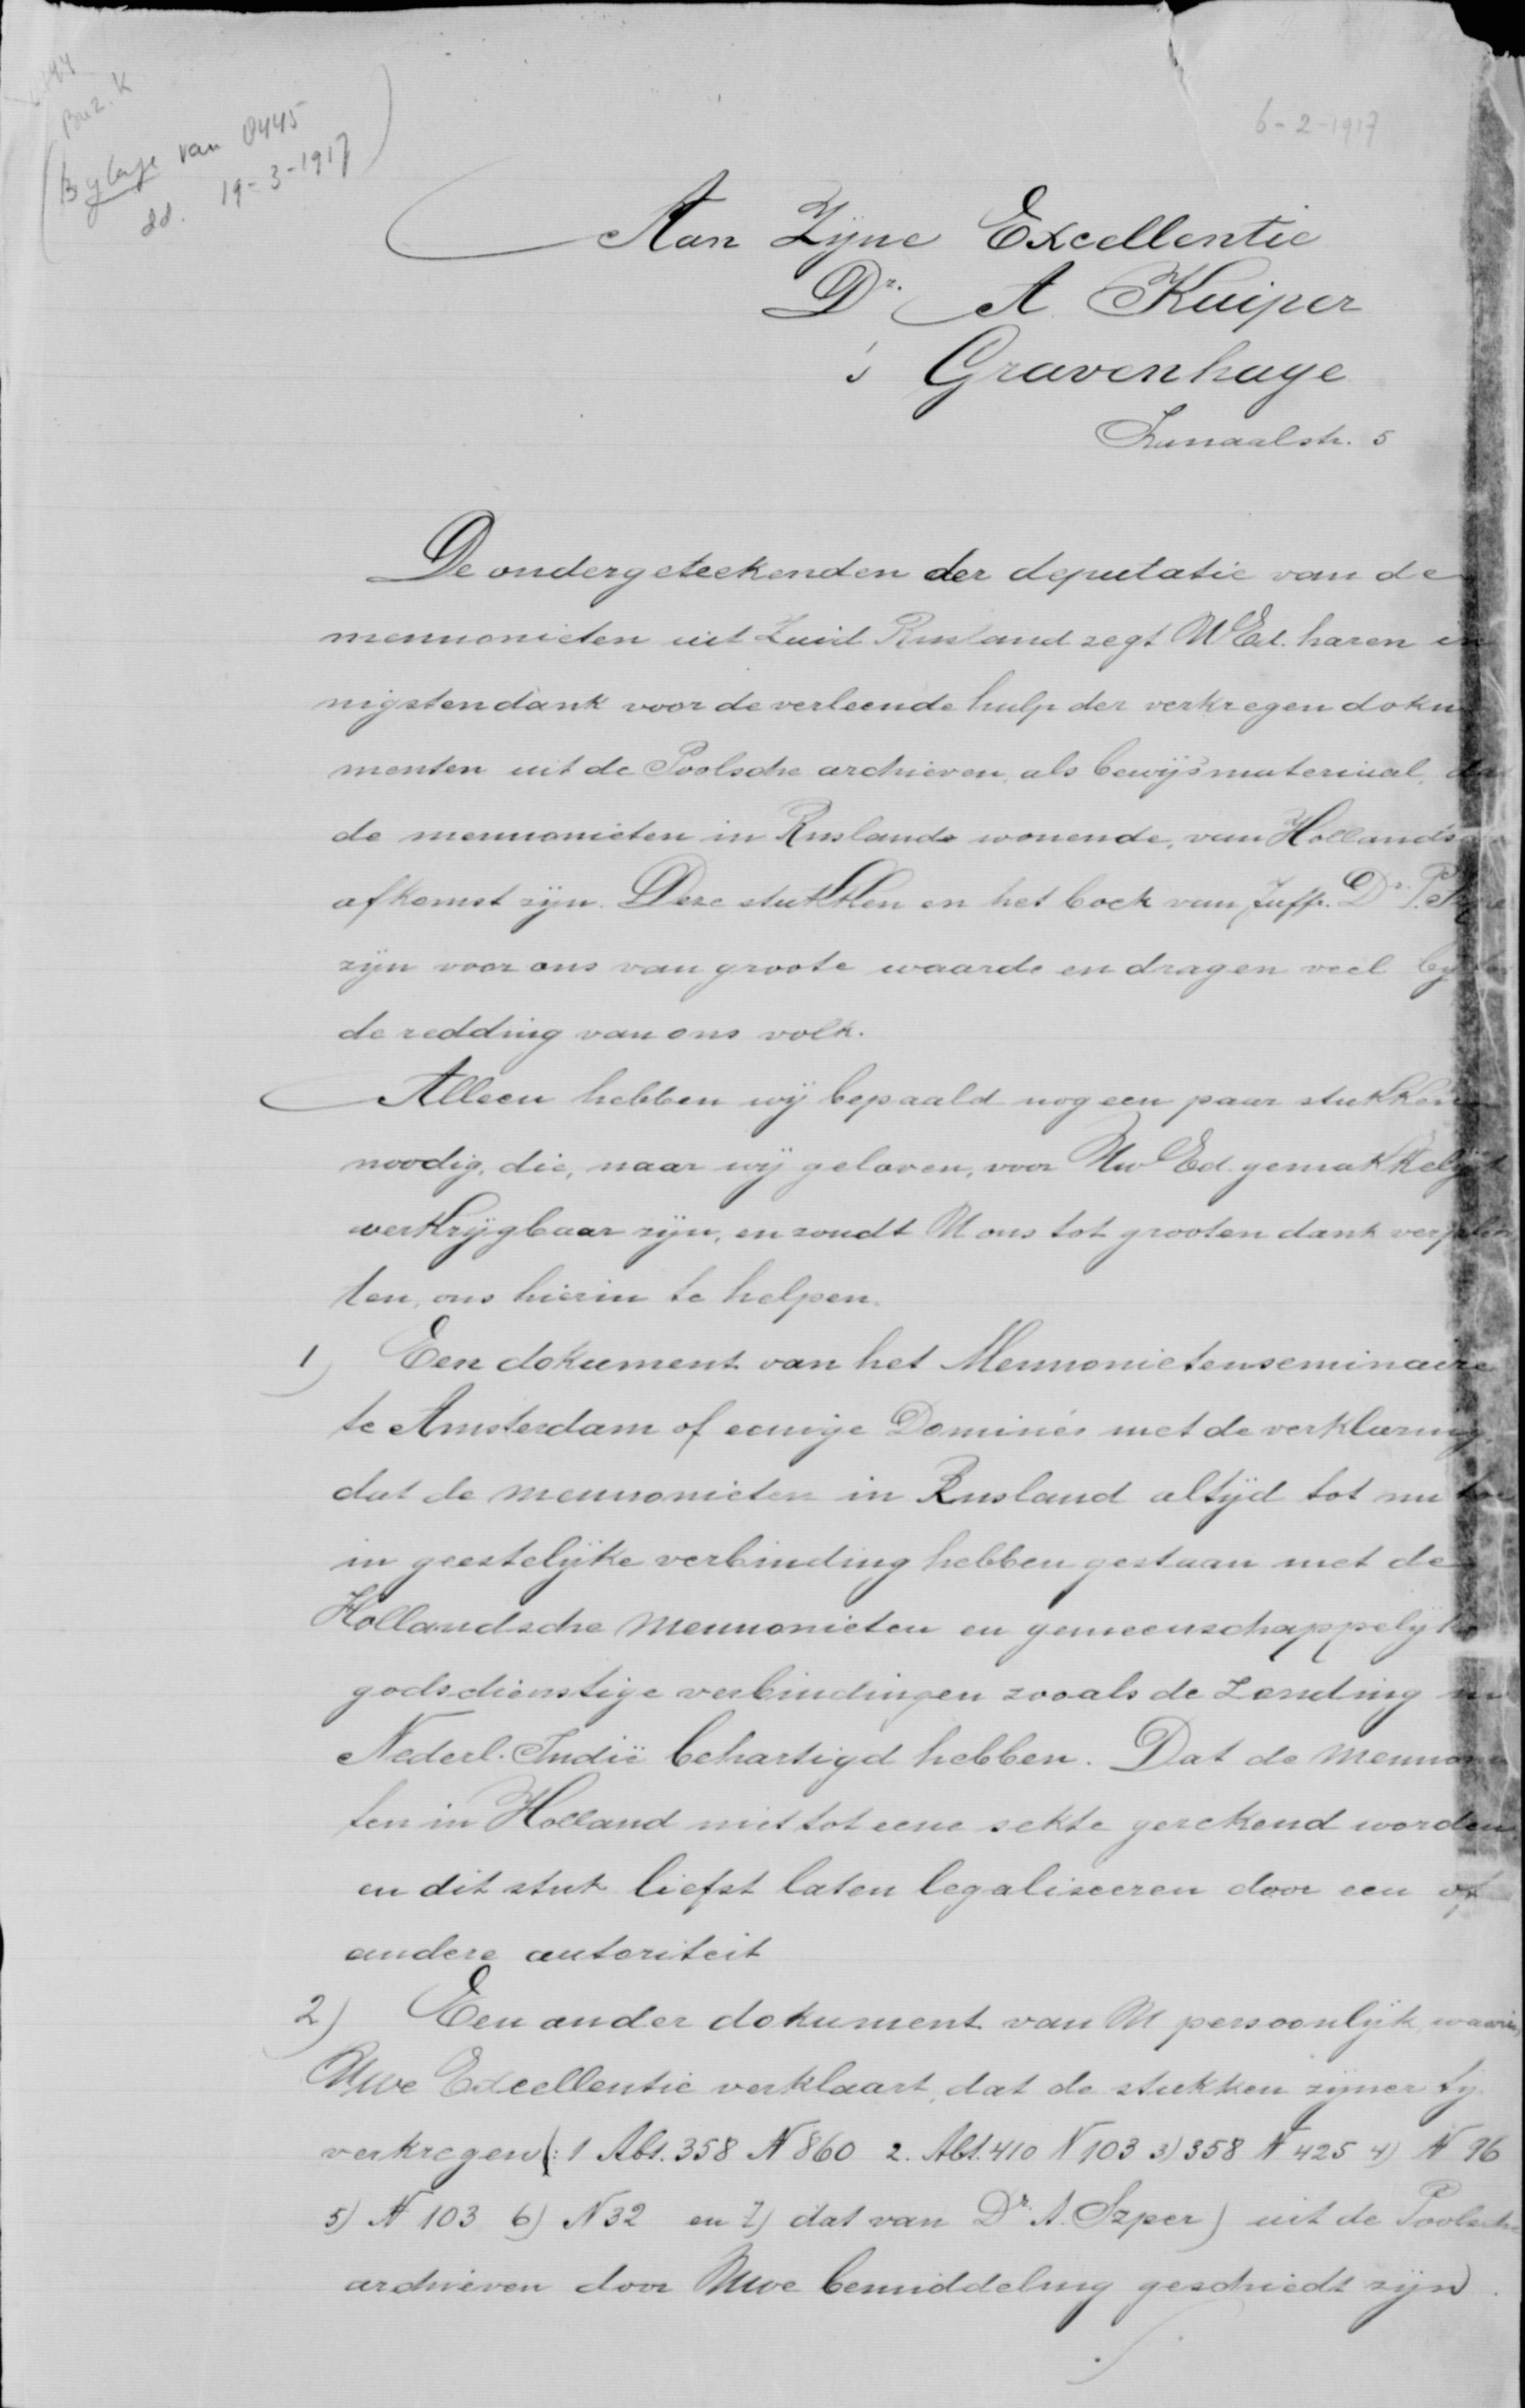 Buz. K
(Bylage van 0445
dd. 19-3-1917)
6-2-1917
Aan Zijne Excellentie
Dr. A. Kuiper
's Gravenhage
Kanaalstr. 5
De ondergeteekenden der deputatie van de
mennonieten uit Zuid Rusland zegt UEd. haren in
nigsten dank voor de verleende hulp der verkregen doku
menten uit de Poolsche archieven, als bewijsmateriaal, dat
de mennonieten in Ruslands wonende, van Hollandsche
afkomst zijn. Deze stukken en het boek van Juffr. Dr.
zijn voor ons van groote waarde en dragen veel bij tot
de redding van ons volk.
Alleen hebben wij bepaald nog een paar stukken
noodig, die, naar wij geloven, voor Uw Ed. gemakkelijk
verkrijgbaar zijn, en zoudt U ons tot grooten dank verplich
ten, ons hierin te helpen.
1) Een dokument van het Mennonietenseminaire
te Amsterdam of eenige Dominés met de verklaring,
dat de mennonieten in Rusland altijd tot nu toe
in geestelijke verbinding hebben gestaan met de
Hollandsche Mennonieten en gemeenschappelijke
godsdienstige verbindingen zooals de Zending in
Nederl. Indië behartigd hebben. Dat de Mennonie
ten in Holland niet tot eene sekte gerekend worden
en dit stuk liefst laten legaliseeren door een of
andere autoriteit
2) Een ander dokument van U persoonlijk, waarin
Uwe Excellentie verklaart, dat de stukken zijner tij
verkregen (: 1 Abt. 358 N 860 2. Abt. 410 N 103 3) 358 N 425 4) N 96
5) N 103 6) N 32 en 7) dat van Dr. A. Szper) uit de Poolsche
archieven door Uwe bemiddeling geschiedt zijn.